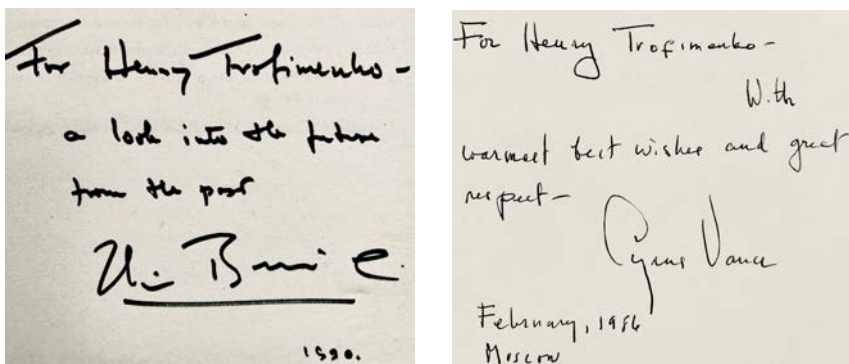 For Henry Trofimenko –
a look into the future
from the past
1990.
For Henry Trofimenko –
With
warmest best wishes and great
respect –
Cyrus Vance
February, 1986
Moscow